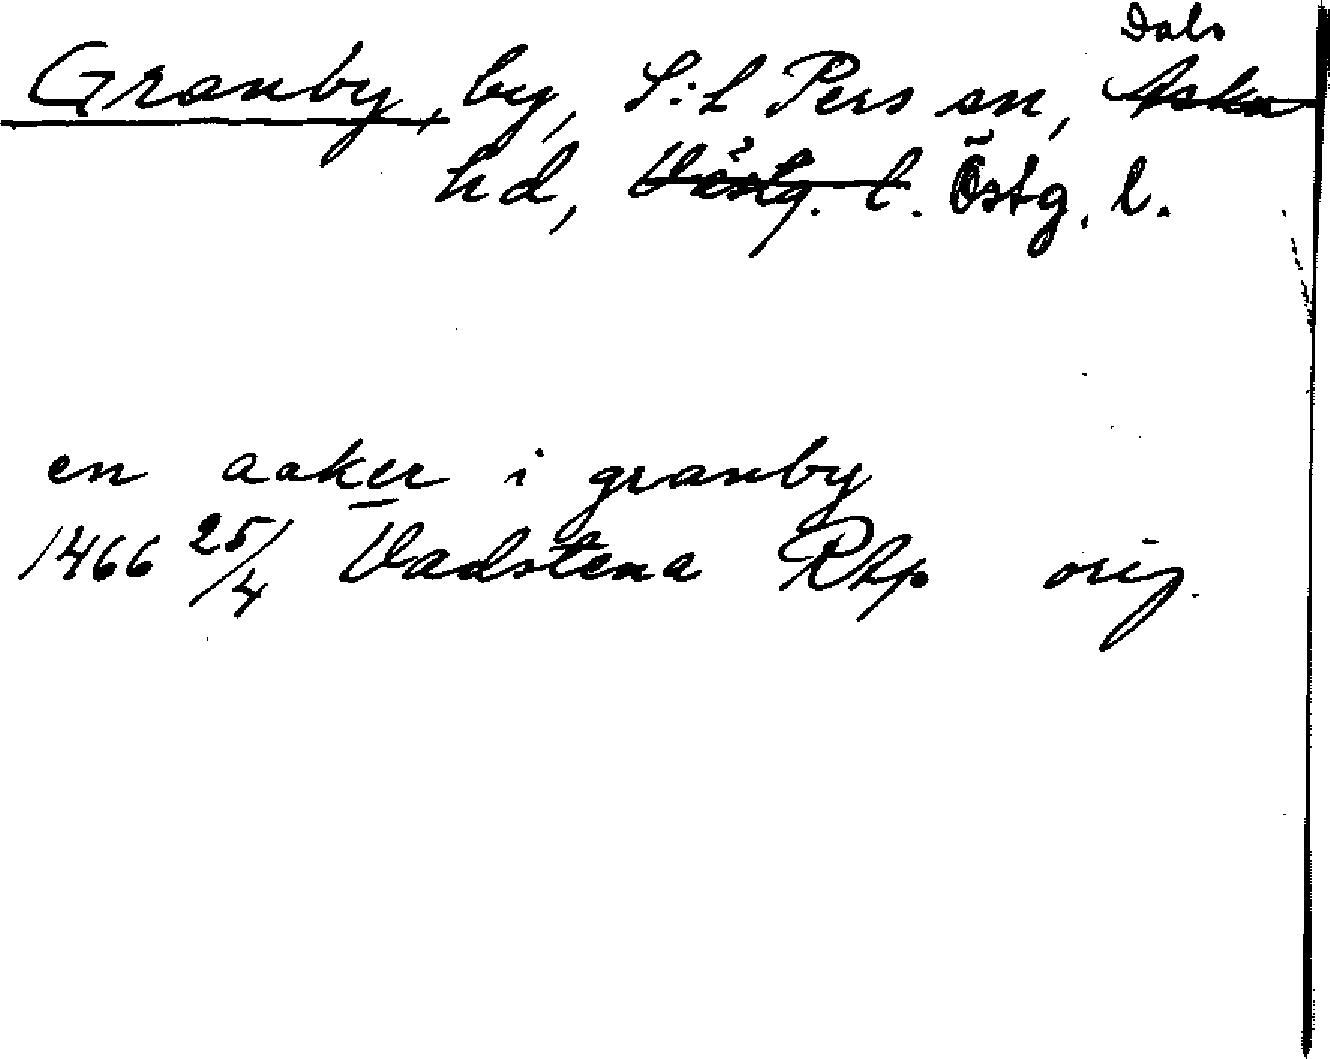 Dals
Granby, by, S:t Pers sn, Aska
hd, Västg. l. Östg. l.
en aaker i granby
1466 25/4 Vadstena RAp orig.